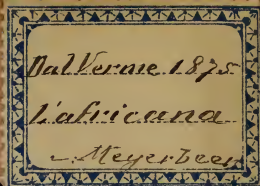 Dal Verme 1875
L'africana
Meyerbeer